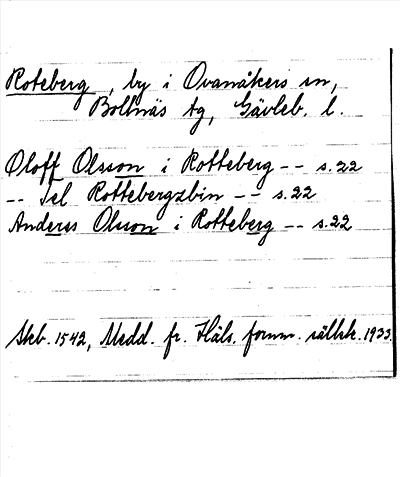 Roteberg, by i Ovanåkers sn,
Bollnäs tg, Gävleb. l.
Oloff Olsson i Rotteberg -- s. 22
-- Jel Rottebergzbin -- s. 22
Anders Olsson i Rotteberg -- s. 22
Skb. 1542, Medd. fr. Häls. fornm. sällsk. 1933.